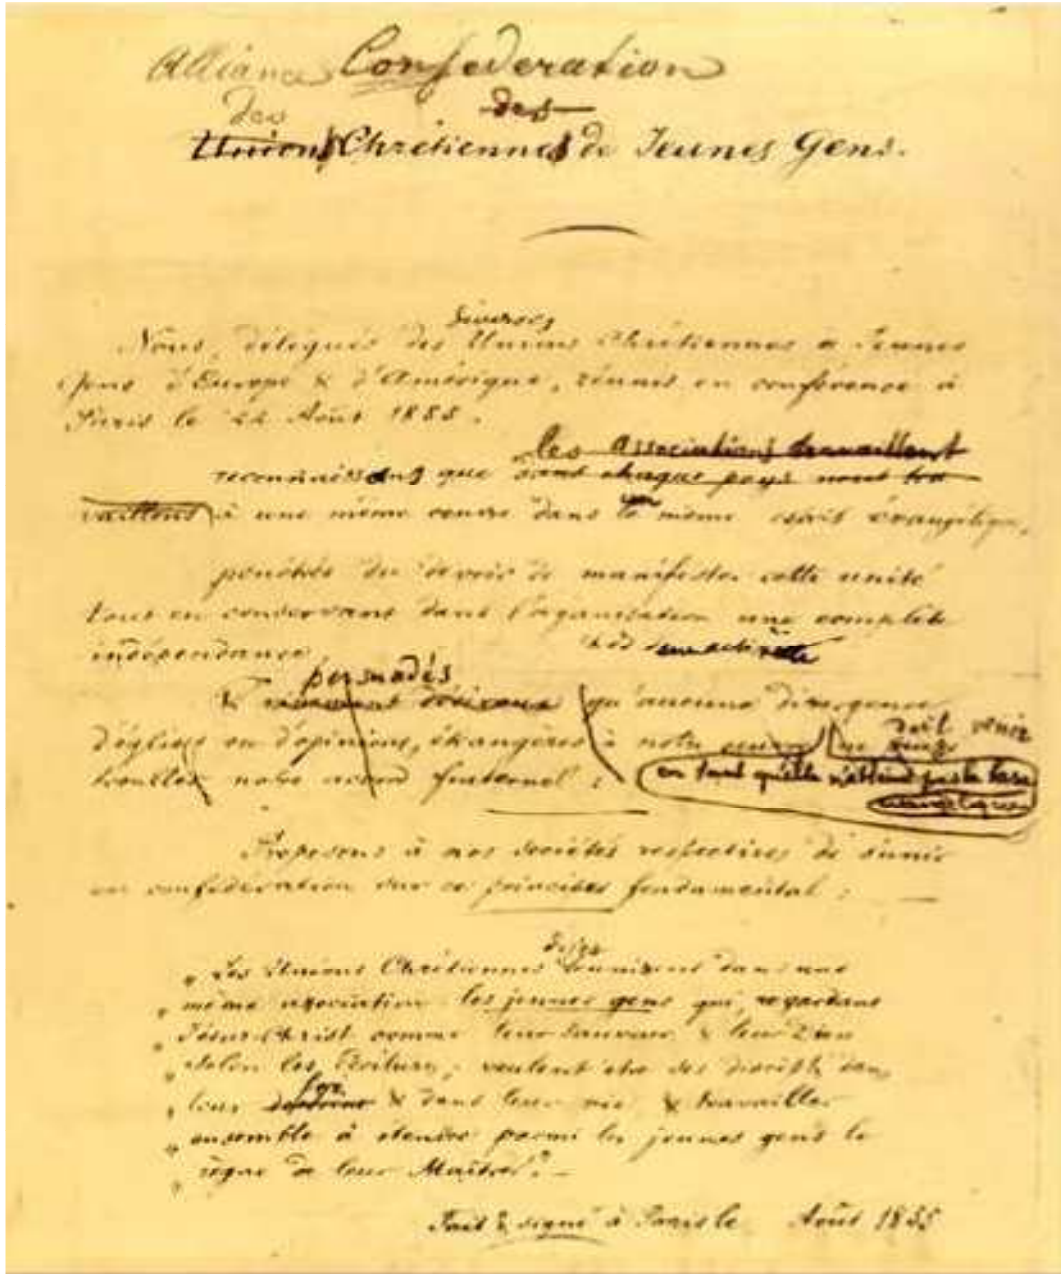 Alliance Confédération
des des
Unions Chrétiennes de Jeunes Gens.
diverses
Nous, délégués des Unions Chrétiennes de Jeunes
Gens d'Europe & d'Amérique, réunis en conférence à
Paris le 22 Août 1855.
les associations travaillent
reconnaissons que dans chaque pays nous tra
vaillons à une même œuvre dans le même esprit évangélique,
un
pénétrés du devoir de manifester cette unité
tout en conservant dans l'organisation une complète
indépendance
persuadés
& désireux qu'aucune divergence
d'églises ou d'opinions, étrangères à notre œuvre ne
doit venir
troubler notre accord fraternel :
en tant qu'elle n'atteint pas la base
évangélique
Proposons à nos sociétés respectives de s'unir
en confédération sur ce principe fondamental :
„ Les Unions Chrétiennes réunissent dans une
„ même association les jeunes gens qui, regardant
„ Jésus-Christ comme leur Sauveur & leur Dieu
„ selon les Écritures, veulent être ses disciples dans
foi
„ leur doctrine & dans leur vie & travailler
„ ensemble à étendre parmi les jeunes gens le
„ règne de leur Maître." –
Fait & signé à Paris le Août 1855